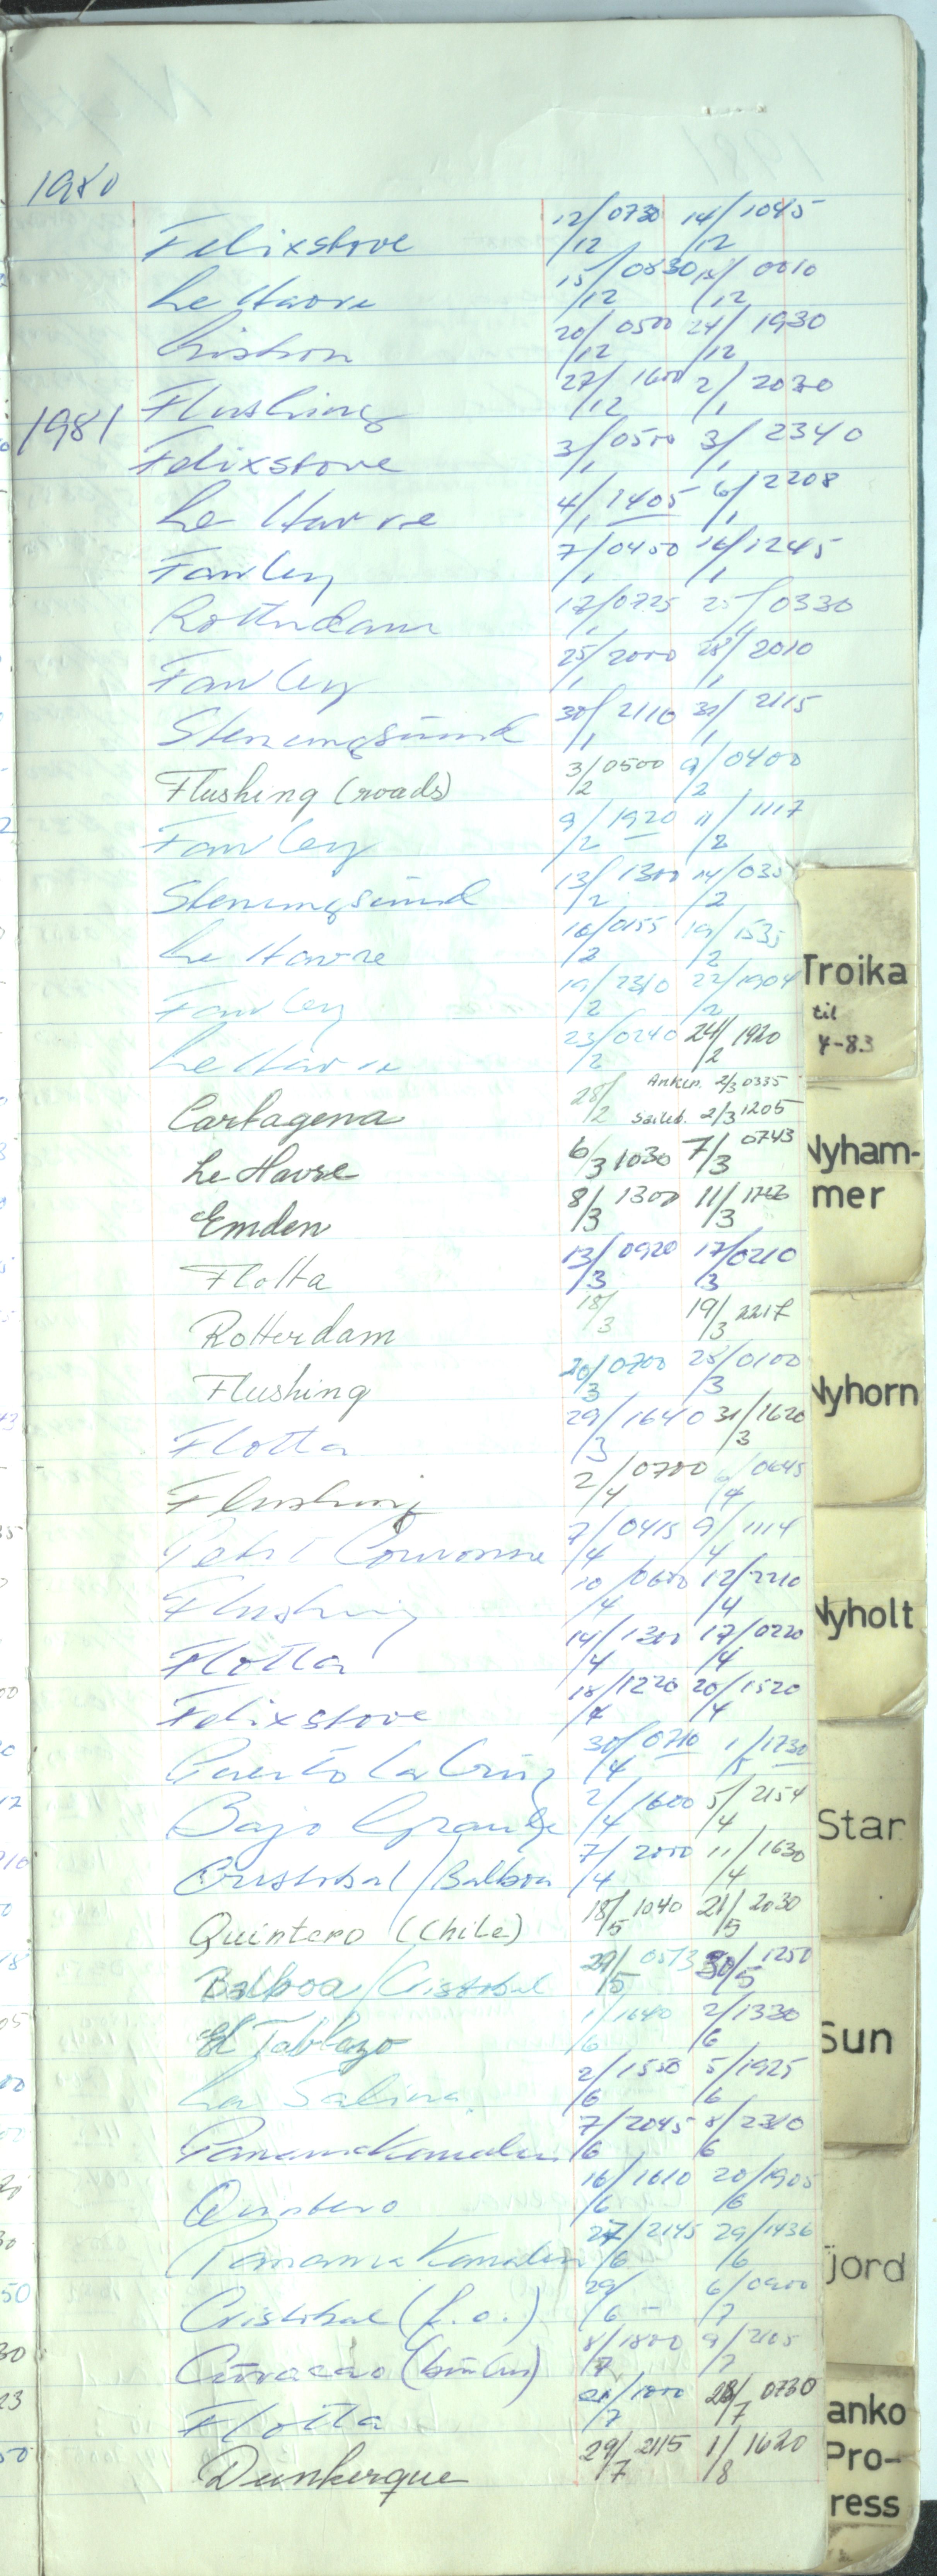 1980
Felixstove 12/12 0730 14/12 1045
Le Havre 15/12 0830 /12 0010
Lisbon 20/12 0500 24/12 1930
Flushing 27/12 1600 2/1 2030
1981
Felixstove 3/1 0500 3/1 2340
Le Havre 4/1 1405 6/1 2208
Fawley 7/1 0450 16/1 1245
Rotterdam 17/1 0725 25/1 0330
Fawley 25/1 2000 28/1 2010
Stenungsund 30/1 2110 31/1 2115
Flushing (roads) 3/2 0500 9/2 0400
Fawley 9/2 1920 11/2 1117
Stenungsund 13/2 1300 14/2 035
Le Havre 16/2 0155 19/2 1535
Fawley 19/2 2310 22/2 1904
Le Havre 23/2 0240 24/2 1920
Cartagena 28/2 Anken. 2/3 0335
Sailed. 2/3 1205
Le Havre 6/3 1030 7/3 0743
Emden 8/3 1300 11/3
Flotta 13/3 0920 17/3 0210
Rotterdam 18/3 19/3 2217
Flushing 20/3 0700 28/3 0100
Flotta 29/3 1640 31/3 1620
Flushing 2/4 0700 6/4 0645
Petit Couronne 7/4 0415 9/4 1114
Flushing 10/4 0600 12/4 2210
Flotta 14/4 1300 17/4 0220
Felixstove 18/4 1220 20/4 1520
Puerto La Cruz 30/4 0710 1/5 1730
Bajo Grande 2/4 1600 5/4 2154
Cristobal/Balboa 7/4 2000 11/4 1630
Quintero (Chile) 18/5 1040 21/5 2030
Balboa/Cristobal 29/5 0513 30/5 1250
El Tablazo 1/6 1640 2/6 1330
La Salina 2/6 1550 5/6 1925
Panamakanalen 7/6 2045 8/6 2310
Quintero 16/6 1610 20/6 1905
Panama Kanalen 27/6 2145 29/6 1436
Cristobal (f.o.) 29/6 - 6/7 0900
Curacao (bunkers) 8/7 1800 9/7 2105
Flotta 21/7 1000 28/7 0730
Dunkerque 29/7 2115 1/8 1620
Troika
til
4-83
Nyham-
mer
Nyhorn
Nyholt
Star
Sun
Fjord
anko
Pro-
ress